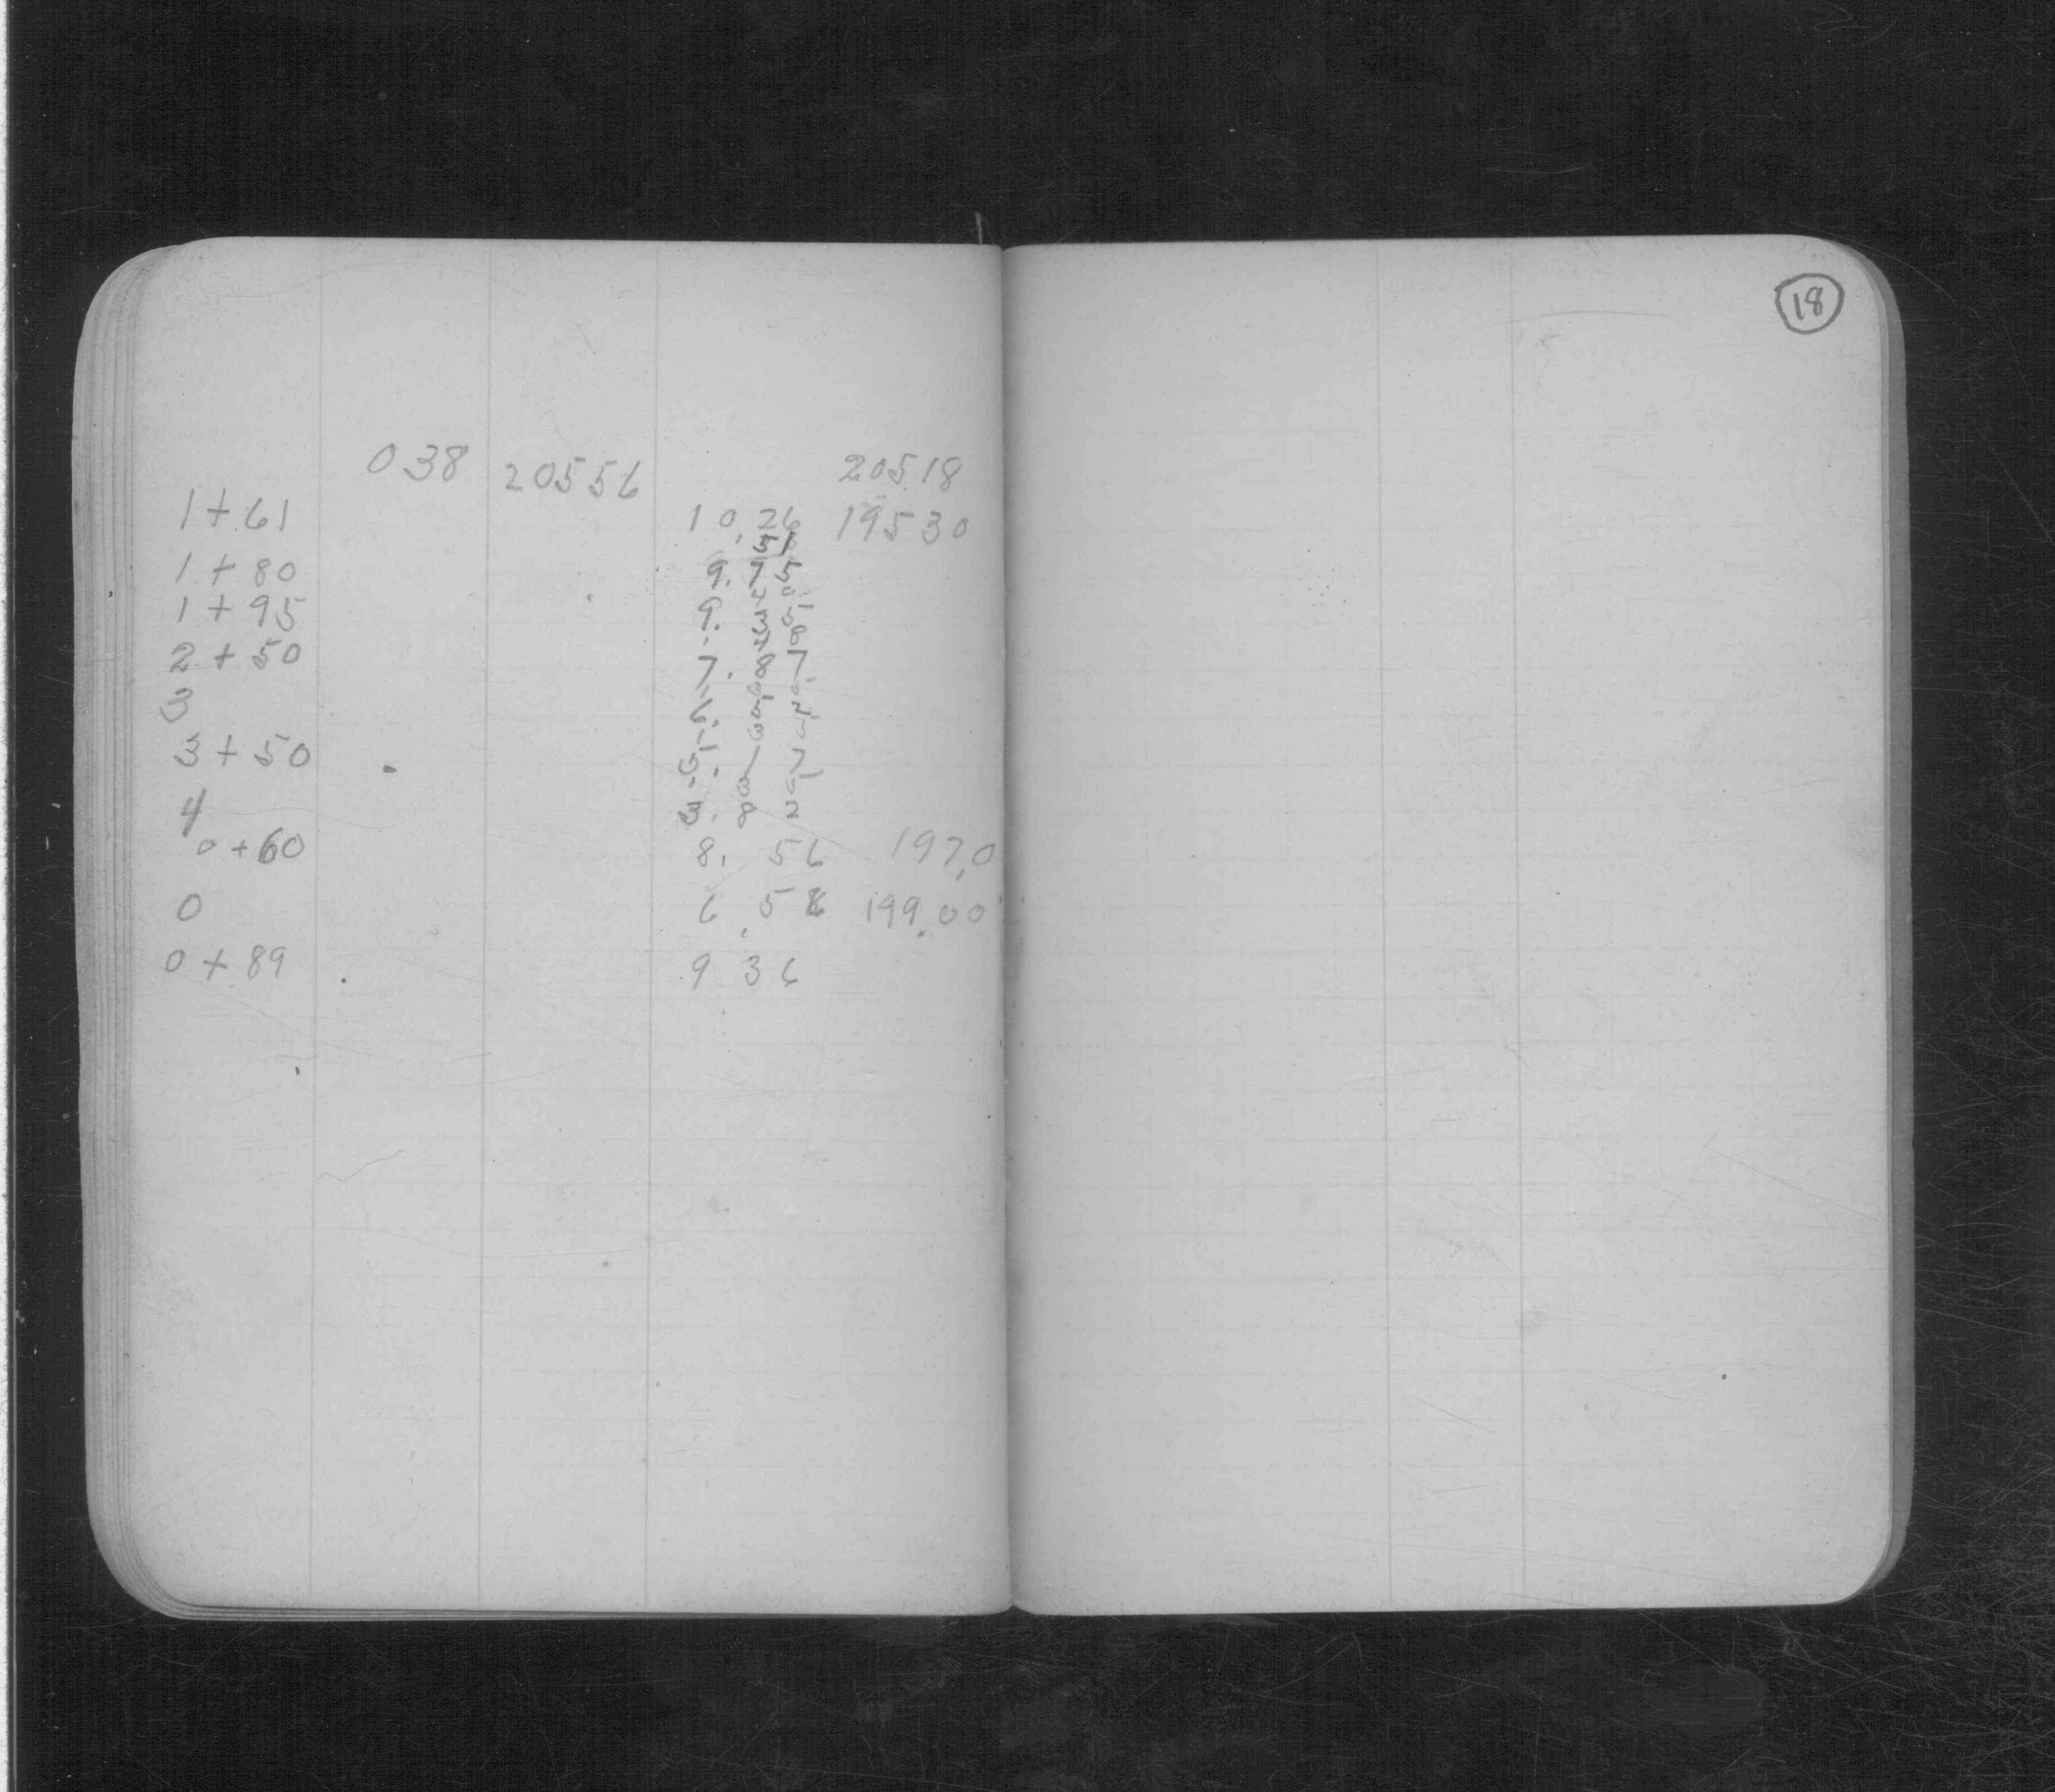 18
038 20556 205.18
1+61 10.26 19530
.51
1+80 9.75
1+95 9.
2+50 7.87
3 6.
3+50 7
4 3.82
0+60 8.56 197.0
0 6.58 199.00
0+89 9 36